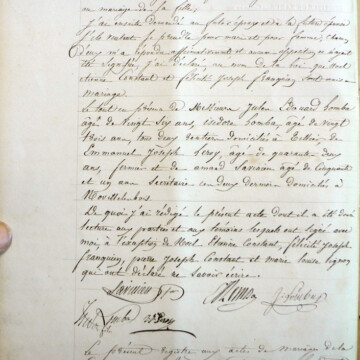 au mariage de sa fille.
J'ai ensuite demandé au futur époux et à la future épouse
s'ils veulent se prendre pour mari et pour femme, chacun
d'eux m'a répondu affirmativement et
j'ai déclaré, au nom de la loi que
Constant et Félicité Joseph Franquin sont unis en
mariage.
Le tout en présence de Messieurs Jules Edouard Lomba
âgé de vingt six ans, isidore Lomba, âgé de vingt
trois ans, tous deux domiciliés à
Emmanuel Joseph Leroy, âgé de quarante deux
ans, fermier et de Saricain âgé de cinquante
et un ans Secrétaire ces deux derniers domiciliés à
De quoi j'ai rédigé le présent acte dont il a été donné
lecture aux parties et aux témoins lesquels ont signé avec
moi, à l'exception de Noël Constant, félicité Joseph
franquin, pierre Joseph Constant et marie Louise
qui ont déclaré ne savoir écrire.
Saricain
Lomba
Le présent registre aux actes de mariage de la